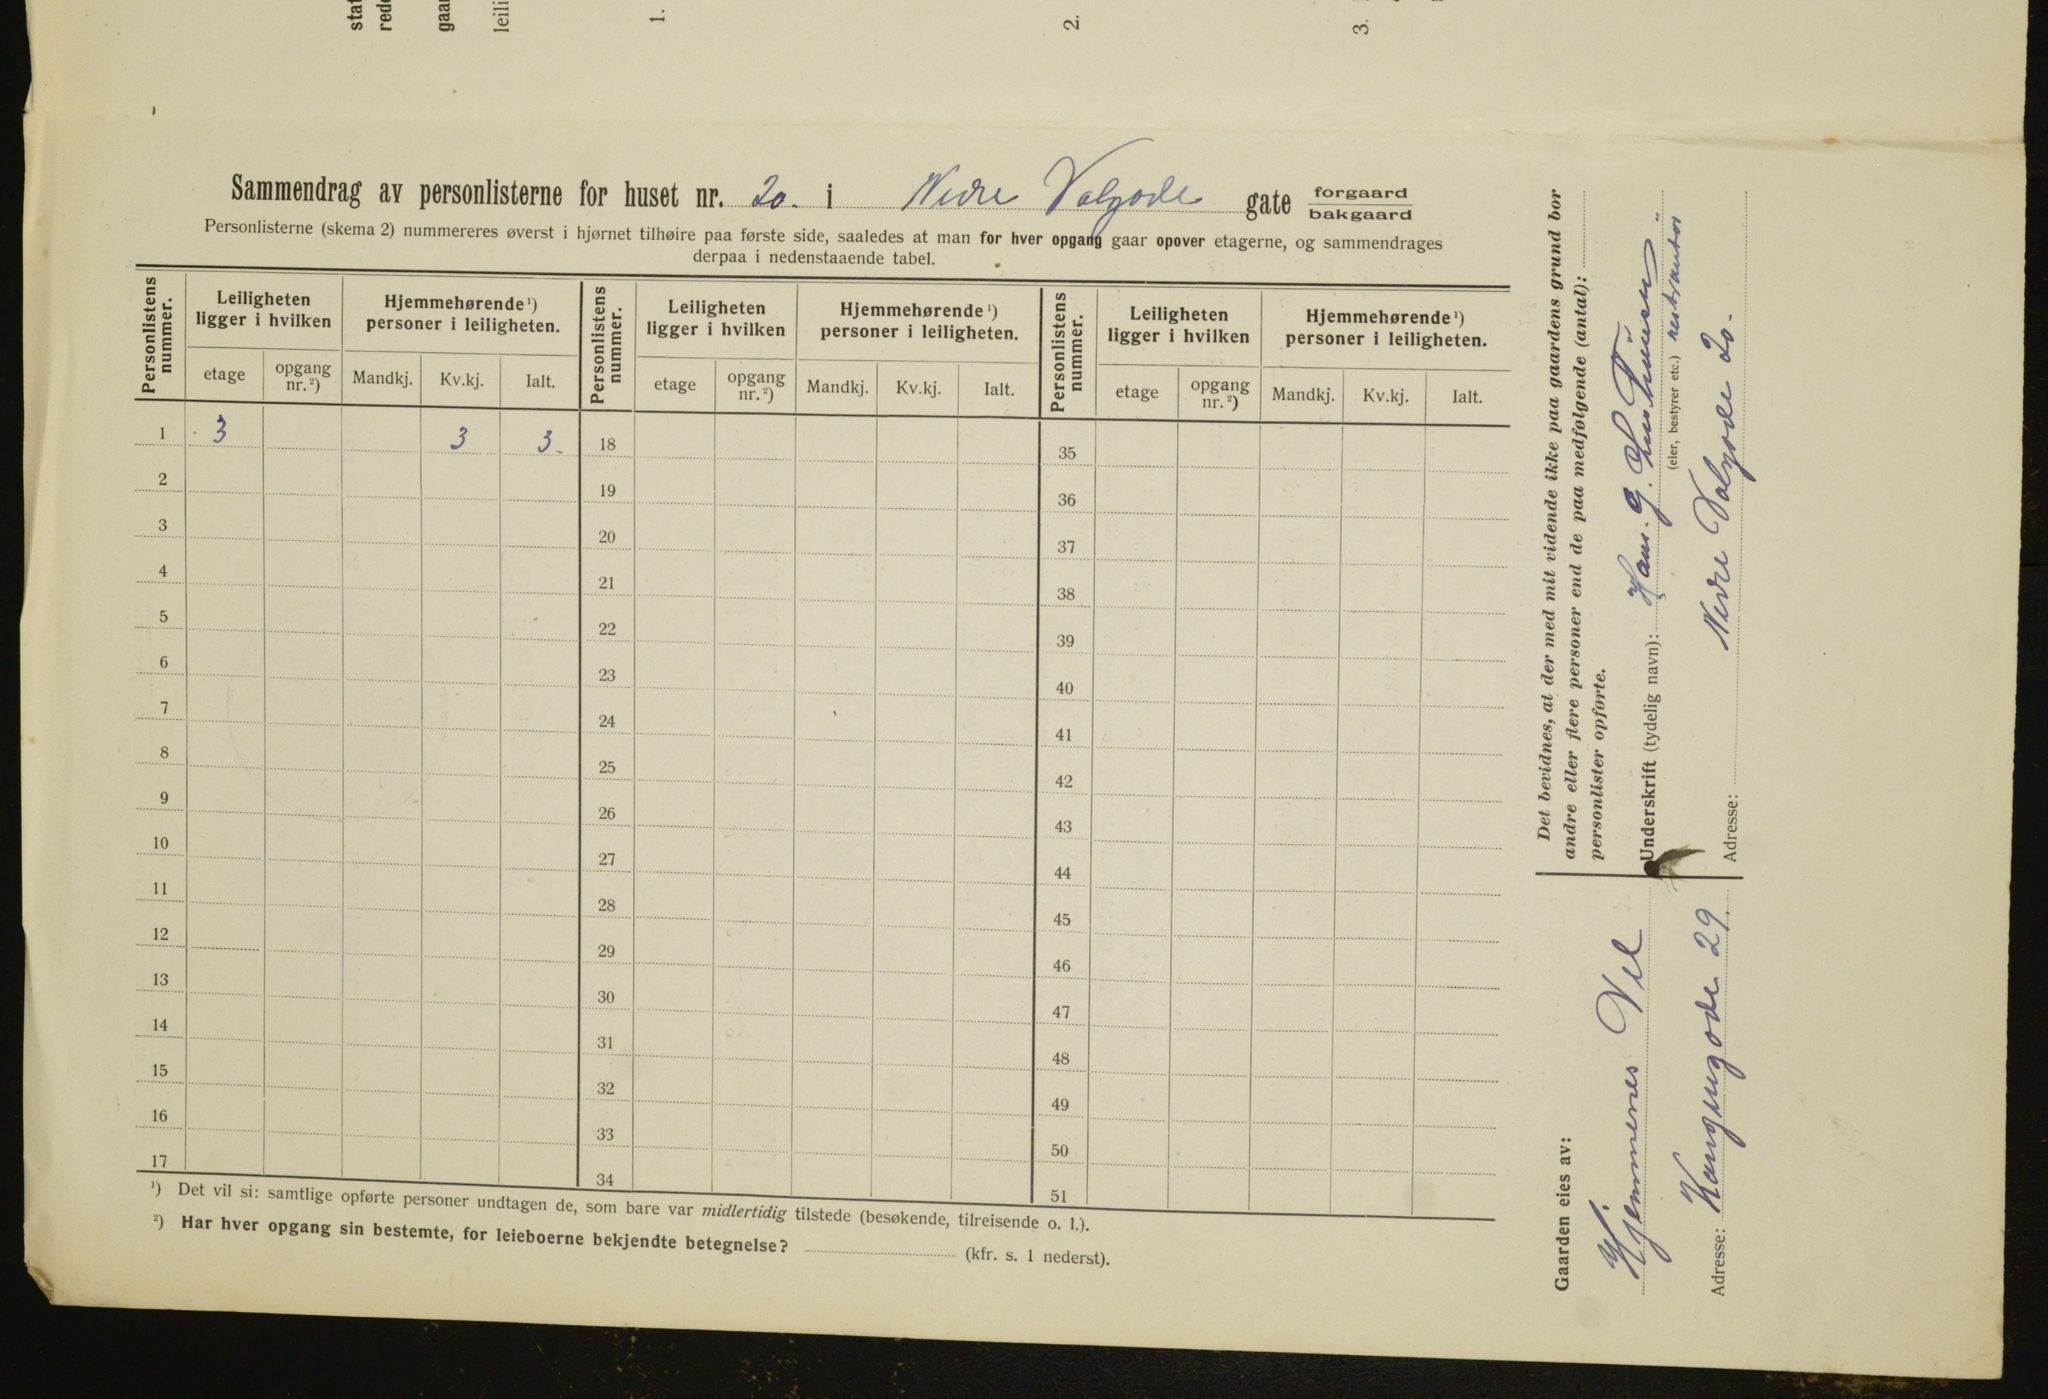 1.
2.
3.
Sammendrag av personlisterne for huset nr. 20. i Nedre Volgade gate forgaard
bakgaard
Personlisterne (skema 2) nummereres øverst i hjørnet tilhøire paa første side, saaledes at man for hver opgang gaar opover etagerne, og sammendrages
derpaa i nedenstaaende tabel.
Personlistens nummer. Leiligheten ligger i hvilken Hjemmehørende ¹) personer i leiligheten. Personlistens nummer. Leiligheten ligger i hvilken Hjemmehørende ¹) personer i leiligheten. Personlistens nummer. Leiligheten ligger i hvilken Hjemmehørende ¹) personer i leiligheten.
etage opgang nr. ²) Mandkj. Kv.kj. Ialt. etage opgang nr. ²) Mandkj. Kv.kj. Ialt. etage opgang nr. ²) Mandkj. Kv.kj. Ialt.
1 3 3 3. 18 35
2 19 36
3 20 37
4 21 38
5 22 39
6 23 40
7 24 41
8 25 42
9 26 43
10 27 44
11 28 45
12 29 46
13 30 47
14 31 48
15 32 49
16 33 50
17 34 51
¹) Det vil si: samtlige opførte personer undtagen de, som bare var midlertidig tilstede (besøkende, tilreisende o. l.).
²) Har hver opgang sin bestemte, for leieboerne bekjendte betegnelse? (kfr. s. 1 nederst).
Det bevidnes, at der med mit vidende ikke paa gaardens grund bor
andre eller flere personer end de paa medfølgende (antal):
personlister opførte.
Underskrift (tydelig navn): Hans. G.
(eier, bestyrer etc.) restvantör
Adresse: Nedre Volgade 20.
Gaarden eies av:
Hjemmenes Vel
Adresse: Kongensgade 29.